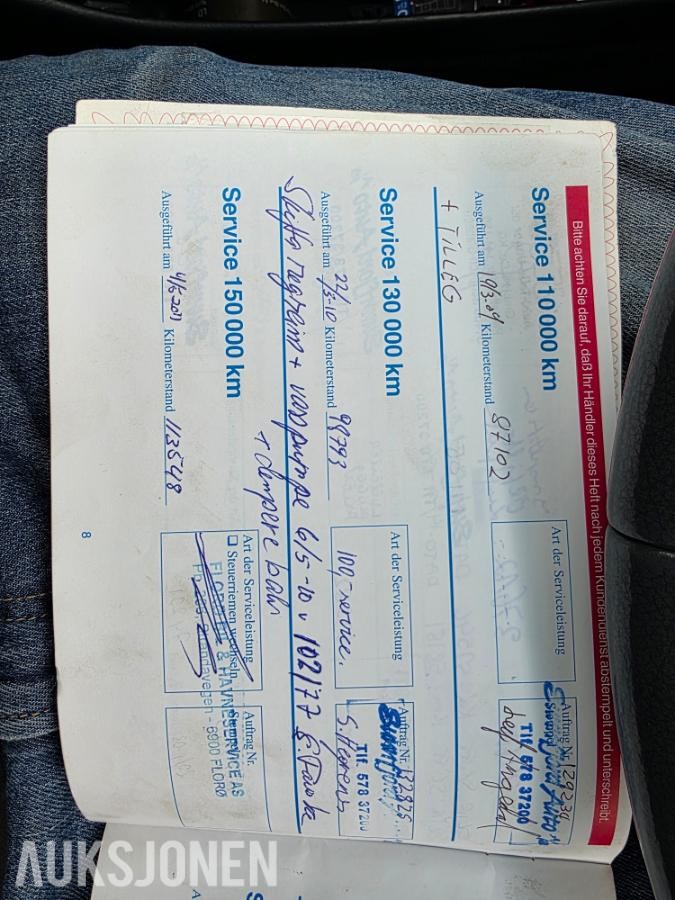 Bitte achten Sie darauf, daß Ihr Händler dieses Heft nach jedem Kundendienst abstempelt und unterschreibt.
Service 110 000 km
Ausgeführt am 19/3-09 Kilometerstand 87102
Art der Serviceleistung
Auftrag Nr. 129239
Tlf. 578 37200
+ TILLEG
Service 130 000 km
Ausgeführt am 22/3-10 Kilometerstand 98793
Art der Serviceleistung
100,- service.
Auftrag Nr.
Tlf. 578 37200
Skifta regreim + vasspumpe 6/5-10 v 102177
+ dempere bak
Service 150 000 km
Ausgeführt am 4/6 2011 Kilometerstand 113548
Art der Serviceleistung
Steuerriemen wechseln
Auftrag Nr.
FLORØ & HAVNESERVICE AS
- 6900 FLORØ
8
AUKSJONEN